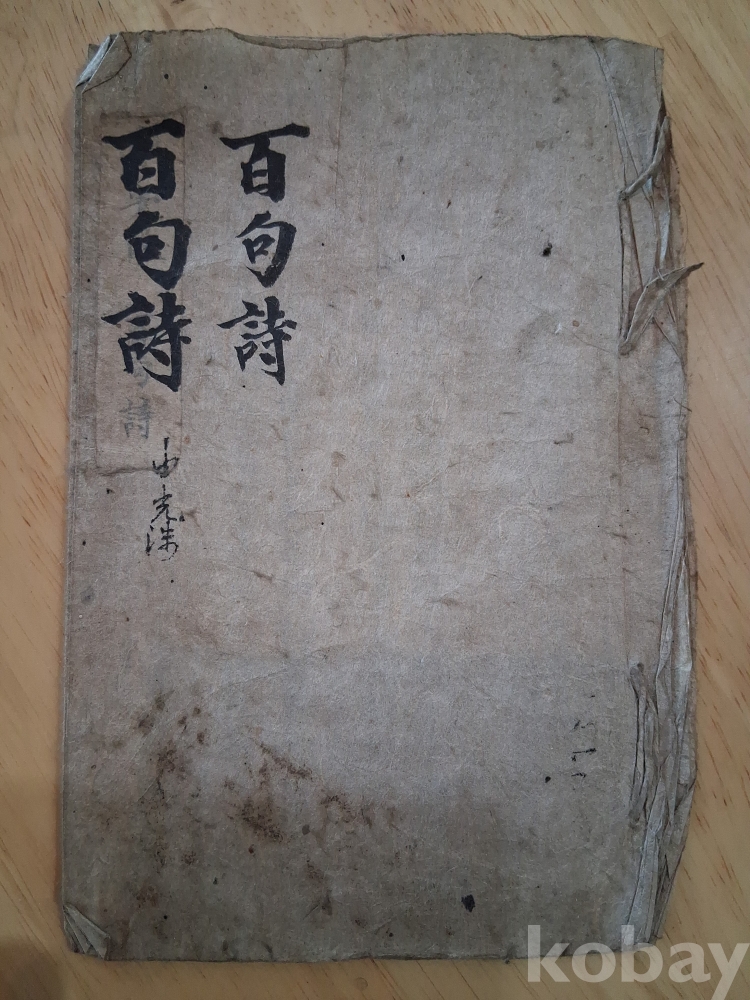 百句詩
百句詩
詩
kobay